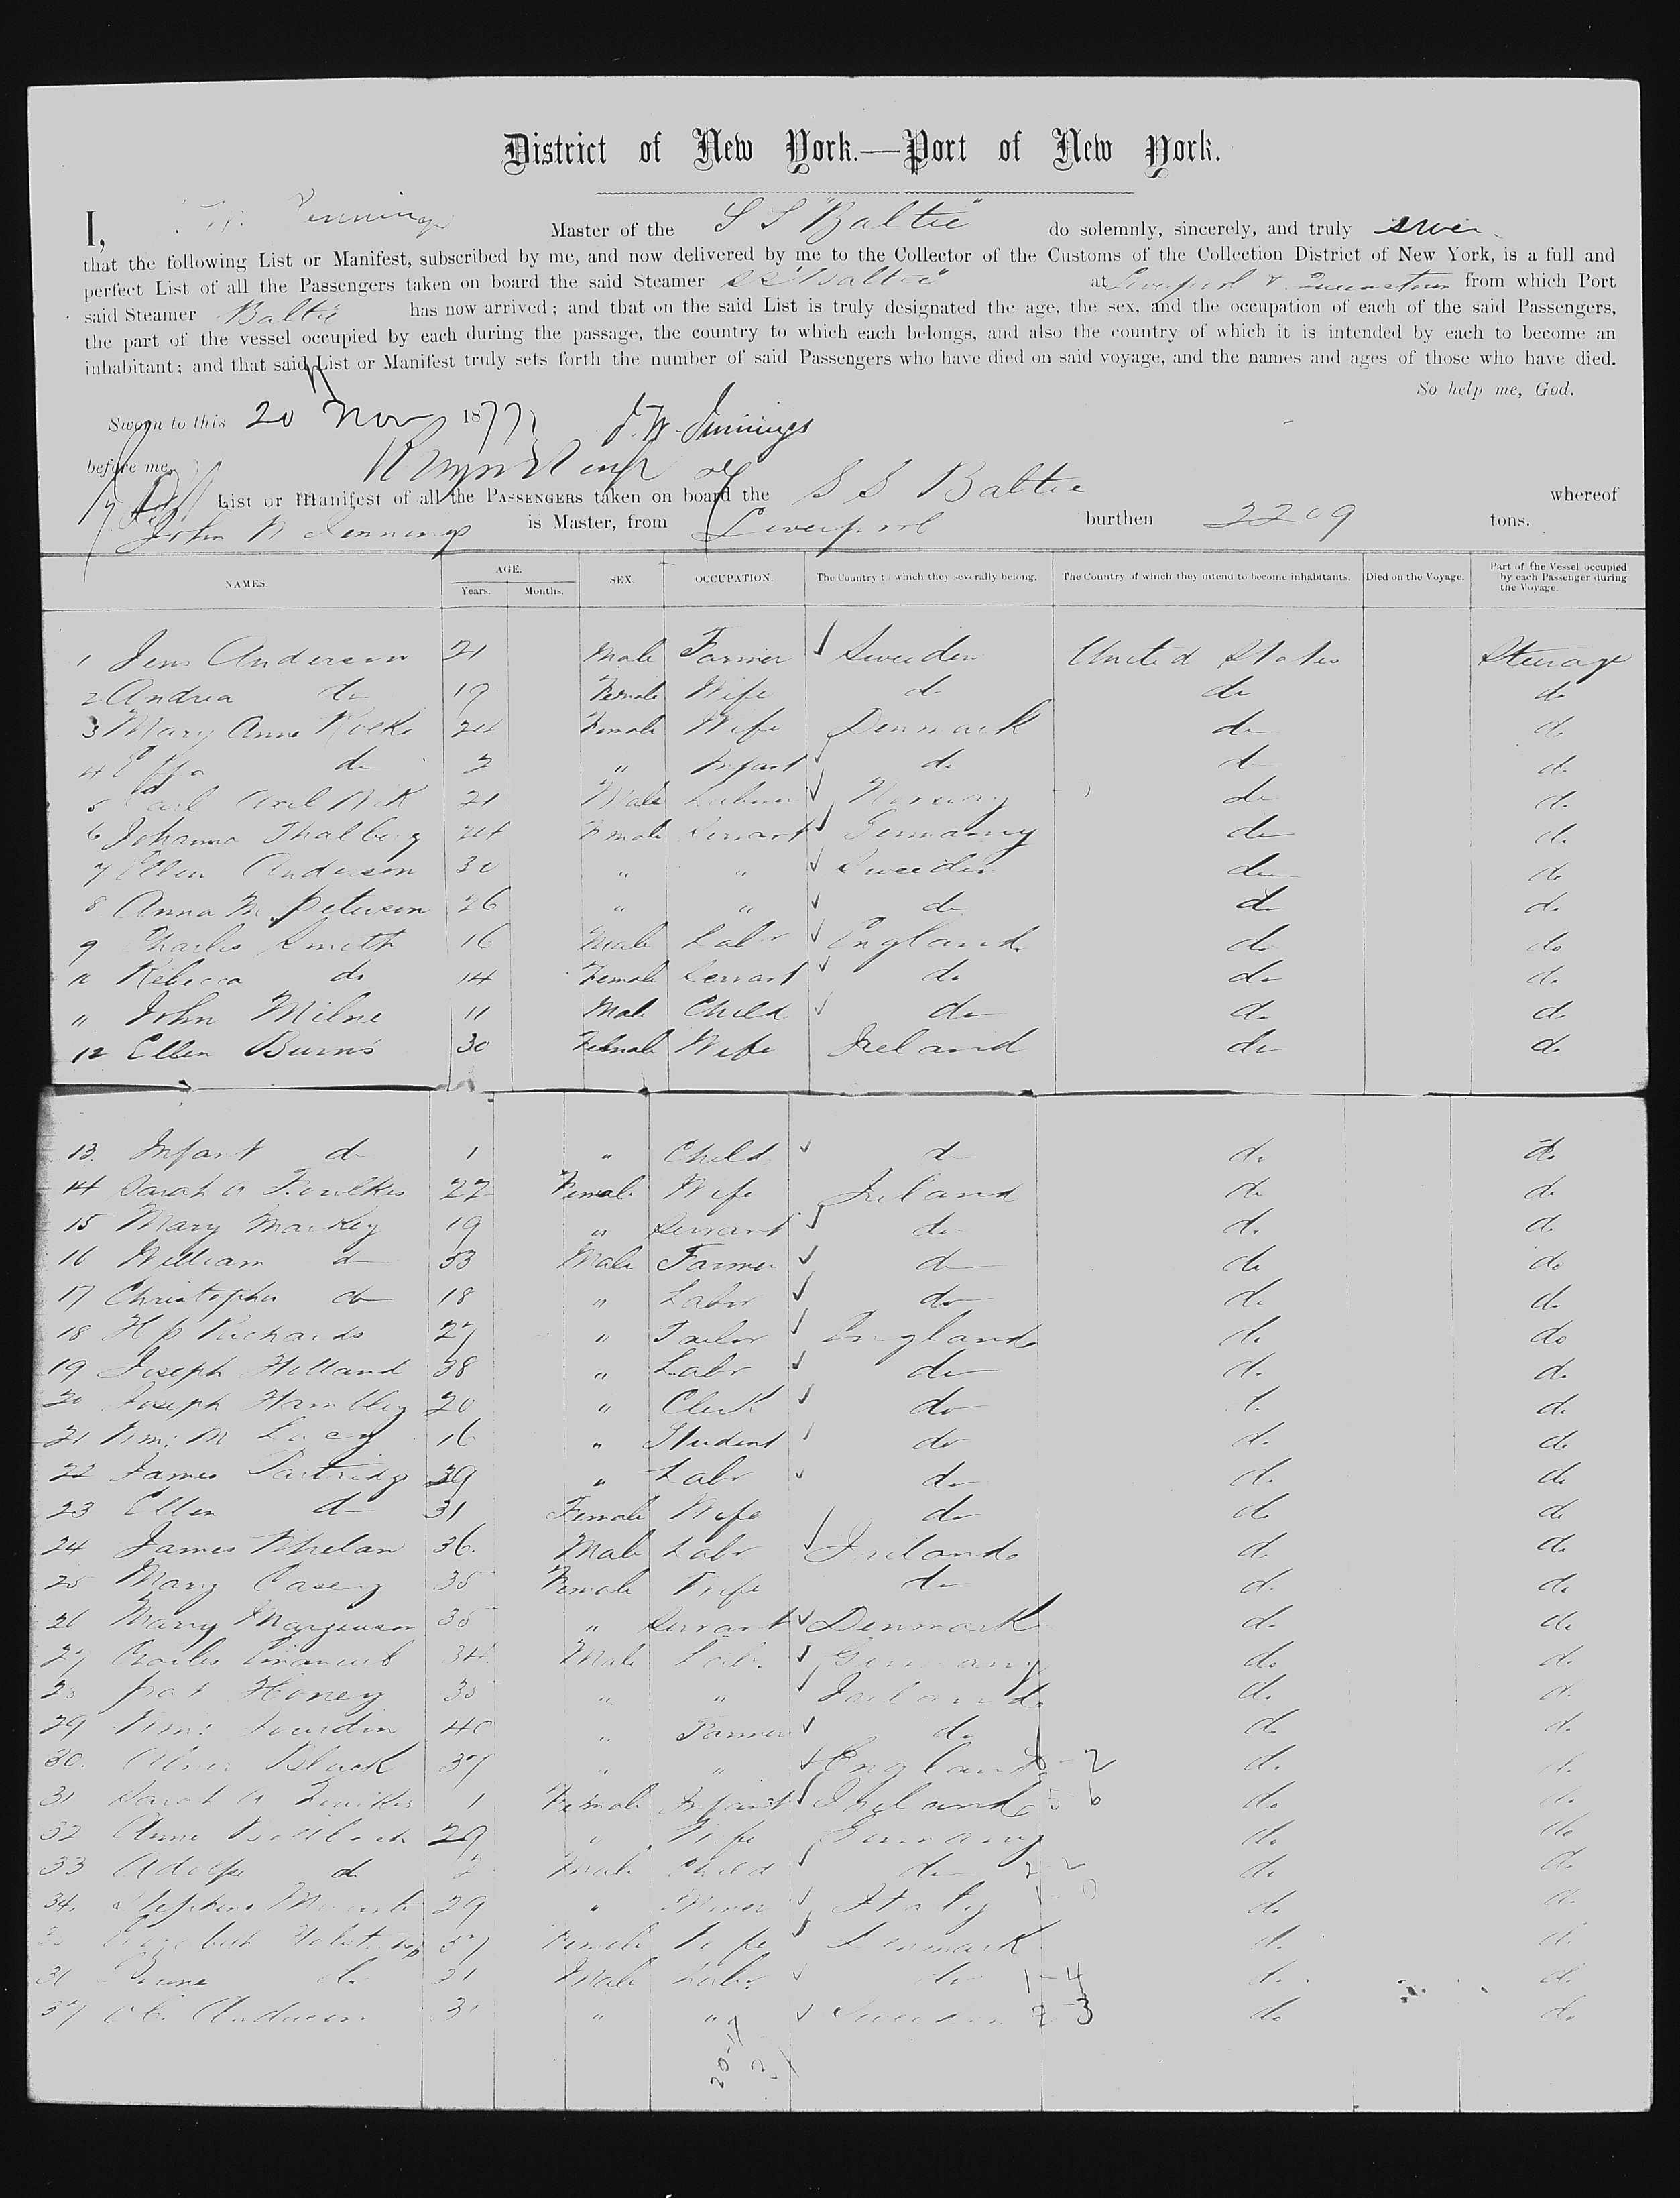 District of New York.—Port of New York.
I, Jennings Master of the S S "Baltic" do solemnly, sincerely, and truly swear
that the following List or Manifest, subscribed by me, and now delivered by me to the Collector of the Customs of the Collection District of New York, is a full and
perfect List of all the Passengers taken on board the said Steamer SS "Baltic" at Liverpool & Queenstown from which Port
said Steamer Baltic has now arrived; and that on the said List is truly designated the age, the sex, and the occupation of each of the said Passengers,
the part of the vessel occupied by each during the passage, the country to which each belongs, and also the country of which it is intended by each to become an
inhabitant; and that said List or Manifest truly sets forth the number of said Passengers who have died on said voyage, and the names and ages of those who have died.
So help me, God.
Sworn to this 20 Nov 1877 J. W. Jennings
before me,
List or Manifest of all the PASSENGERS taken on board the S S Baltic whereof
John W Jennings is Master, from Liverpool burthen 2209 tons.
NAMES. AGE. Years. Months. SEX. OCCUPATION. The Country to which they severally belong. The Country of which they intend to become inhabitants. Died on the Voyage. Part of the Vessel occupied by each Passenger during the Voyage.
1 Jens Anderson 21 Male Farmer Sweden United States Steerage
2 Andrea do 19 Female Wife do do do
3 Mary Anne 24 Female Wife Denmark do do
4 do 2 " Infant do do do
5 Carl 21 Male Labourer Norway do do
6 Johanna Thalberg 24 Female Servant Germany do do
7 Ellen Anderson 30 " " Sweden do do
8 Anna M. Peterson 26 " " do do do
9 Charles Smith 16 Male Labr England do do
10 Rebecca do 14 Female Servant do do do
11 John Milne 11 Male Child do do do
12 Ellen Burns 30 Female Wife Ireland do do
13. Infant do 1 " Child do do do
14 Sarah A Foulkes 22 Female Wife Ireland do do
15 Mary Markey 19 " Servant do do do
16 William do 53 Male Farmer do do do
17 Christopher do 18 " Labr do do do
18 H P Richards 27 " Tailor England do do
19 Joseph Holland 38 " Labr do do do
20 Joseph Hambley 20 " Clerk do do do
21 Wm: M Lacy 16 " Student do do do
22 James Partridge 39 " Labr do do do
23 Ellen do 31 Female Wife do do do
24 James Phelan 36. Male Labr Ireland do do
25 Mary Casey 35 Female Wife do do do
26 Mary 35 " Servant Denmark do do
27 Charles 34 Male Labr. Germany do do
28 Pat Honey 35 " " Ireland do do
29 Wm: 40 " Farmer do do do
30. Black 37 " " England 2 do do
31 Sarah A 1 Female Infant Ireland 5 6 do do
32 Anne 29 " Wife Germany do do
33 do 2 Male Child do 2 2 do do
34. 29 " Miner Italy 1 - 0 do do
Female Wife Denmark do do
36 do 21 Male Labr. do 1 - 4 do do
37 Anderson " " Sweden 2 3 do do